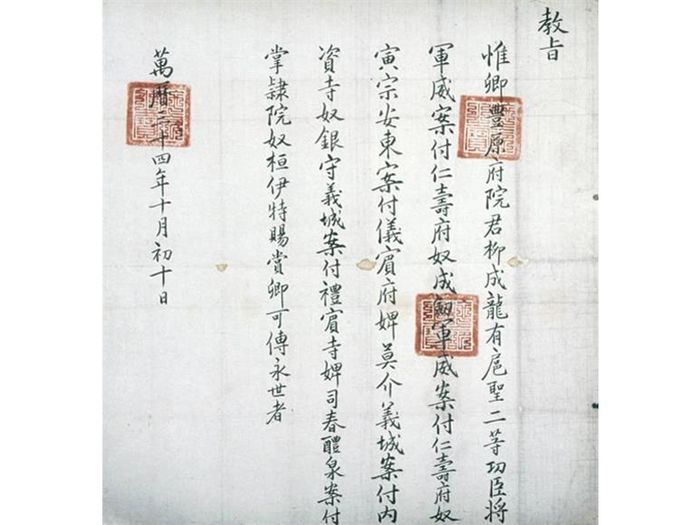 教旨
惟卿豐原府院君柳成龍有扈聖二等功臣將
軍威案付仁壽府奴成軍威案付仁壽府奴
寅宗安東案付儀賓府婢莫介義城案付内
資寺奴銀守義城案付禮賓寺婢司春醴泉案付
掌隷院奴桓伊特賜賞卿可傳永世者
萬曆三十四年十月初十日